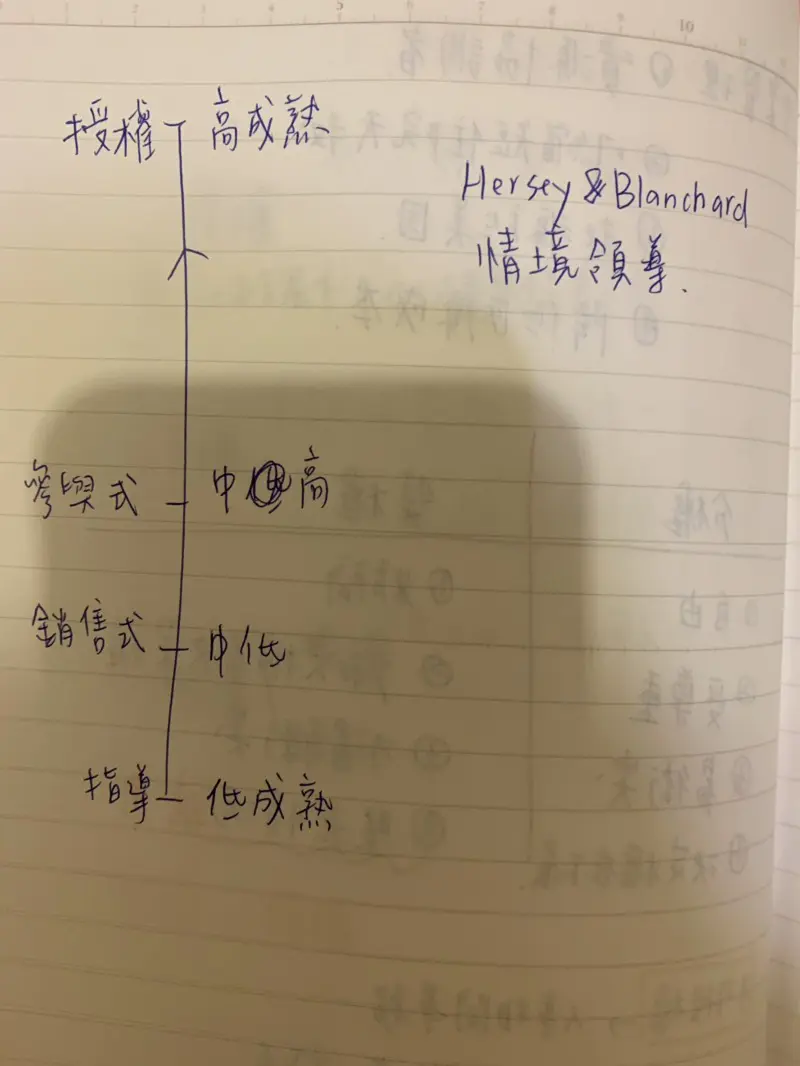 授權 高成熟
Hersey & Blanchard
情境領導.
參與式 中 高
銷售式 中低
指導 低成熟